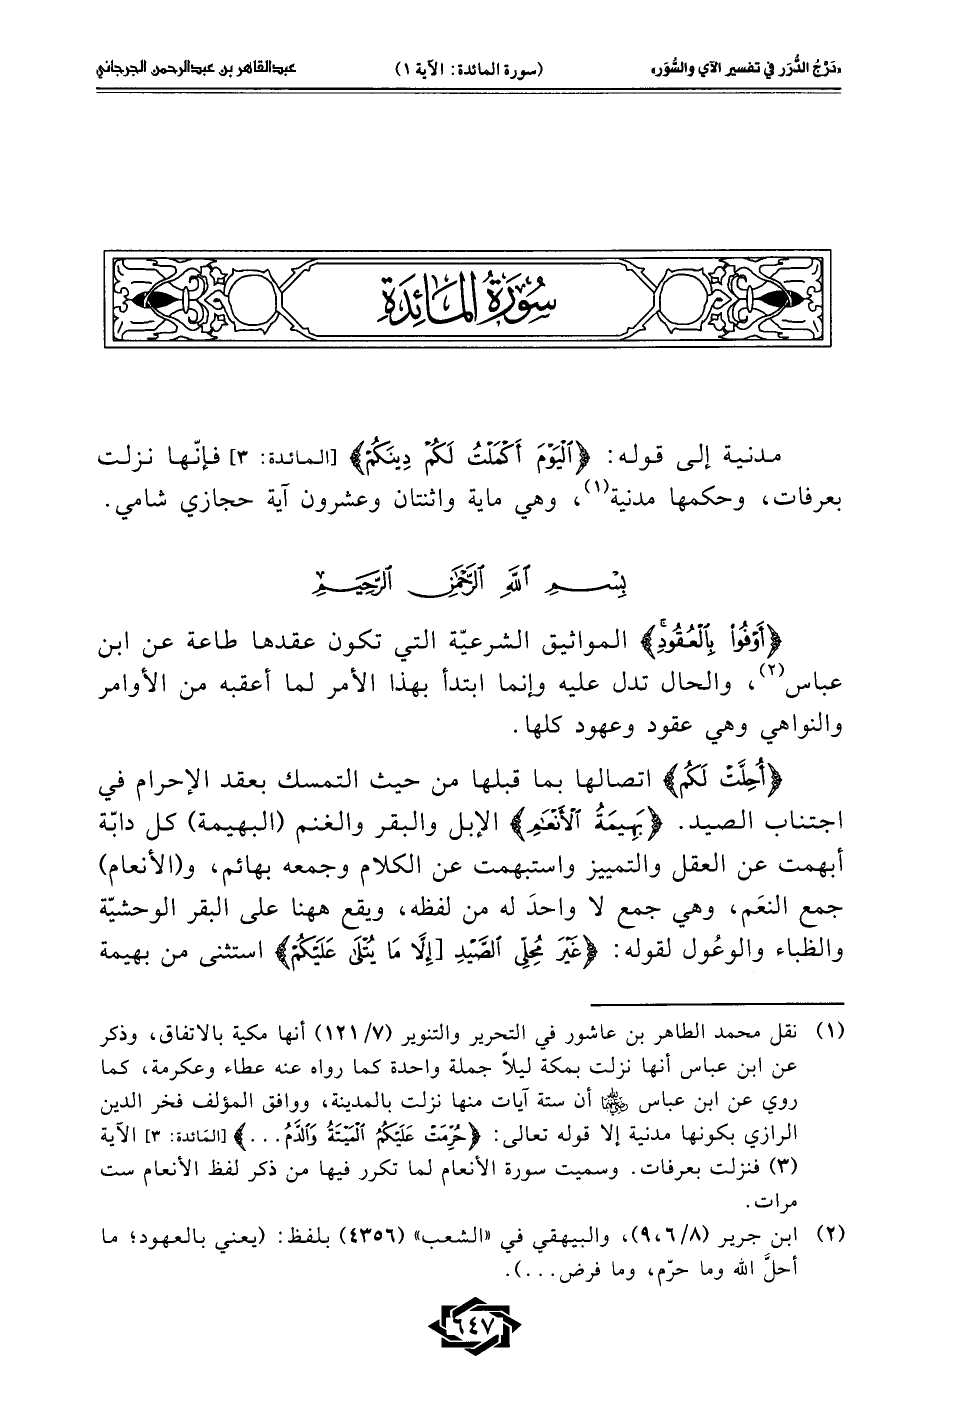 «دَرْجُ الدُّرَر في تفسير الآي والسُّوَر» (سورة المائدة: الآية ١) عبدالقاهر بن عبدالرحمن الجرجاني
سُورَةُ المَائِدَةِ
مدنية إلى قوله: ﴿ٱلْيَوْمَ أَكْمَلْتُ لَكُمْ دِينَكُمْ﴾ [المائدة: ٣] فإنّها نزلت
بعرفات، وحكمها مدنية(١)، وهي ماية واثنتان وعشرون آية حجازي شامي.
بِسْمِ ٱللَّهِ ٱلرَّحْمَٰنِ ٱلرَّحِيمِ
﴿أَوْفُوا۟ بِٱلْعُقُودِۚ﴾ المواثيق الشرعيّة التي تكون عقدها طاعة عن ابن
عباس(٢)، والحال تدل عليه وإنما ابتدأ بهذا الأمر لما أعقبه من الأوامر
والنواهي وهي عقود وعهود كلها.
﴿أُحِلَّتْ لَكُم﴾ اتصالها بما قبلها من حيث التمسك بعقد الإحرام في
اجتناب الصيد. ﴿بَهِيمَةُ ٱلْأَنْعَٰمِ﴾ الإبل والبقر والغنم (البهيمة) كل دابّة
أبهمت عن العقل والتمييز واستبهمت عن الكلام وجمعه بهائم، و(الأنعام)
جمع النعَم، وهي جمع لا واحدَ له من لفظه، ويقع ههنا على البقر الوحشيّة
والظباء والوعُول لقوله: ﴿غَيْرَ مُحِلِّى ٱلصَّيْدِ [إِلَّا مَا يُتْلَىٰ عَلَيْكُمْ﴾ استثنى من بهيمة
(١) نقل محمد الطاهر بن عاشور في التحرير والتنوير (١٢١/٧) أنها مكية بالاتفاق، وذكر
عن ابن عباس أنها نزلت بمكة ليلاً جملة واحدة كما رواه عنه عطاء وعكرمة، كما
روي عن ابن عباس ﵄ أن ستة آيات منها نزلت بالمدينة، ووافق المؤلف فخر الدين
الرازي بكونها مدنية إلا قوله تعالى: ﴿حُرِّمَتْ عَلَيْكُمُ ٱلْمَيْتَةُ وَٱلدَّمُ...﴾ [المَائدة: ٣] الآية
(٣) فنزلت بعرفات. وسميت سورة الأنعام لما تكرر فيها من ذكر لفظ الأنعام ست
مرات.
(٢) ابن جرير (٩،٦/٨)، والبيهقي في «الشعب» (٤٣٥٦) بلفظ: (يعني بالعهود؛ ما
أحلَّ الله وما حرّم، وما فرض...).
٦٤٧